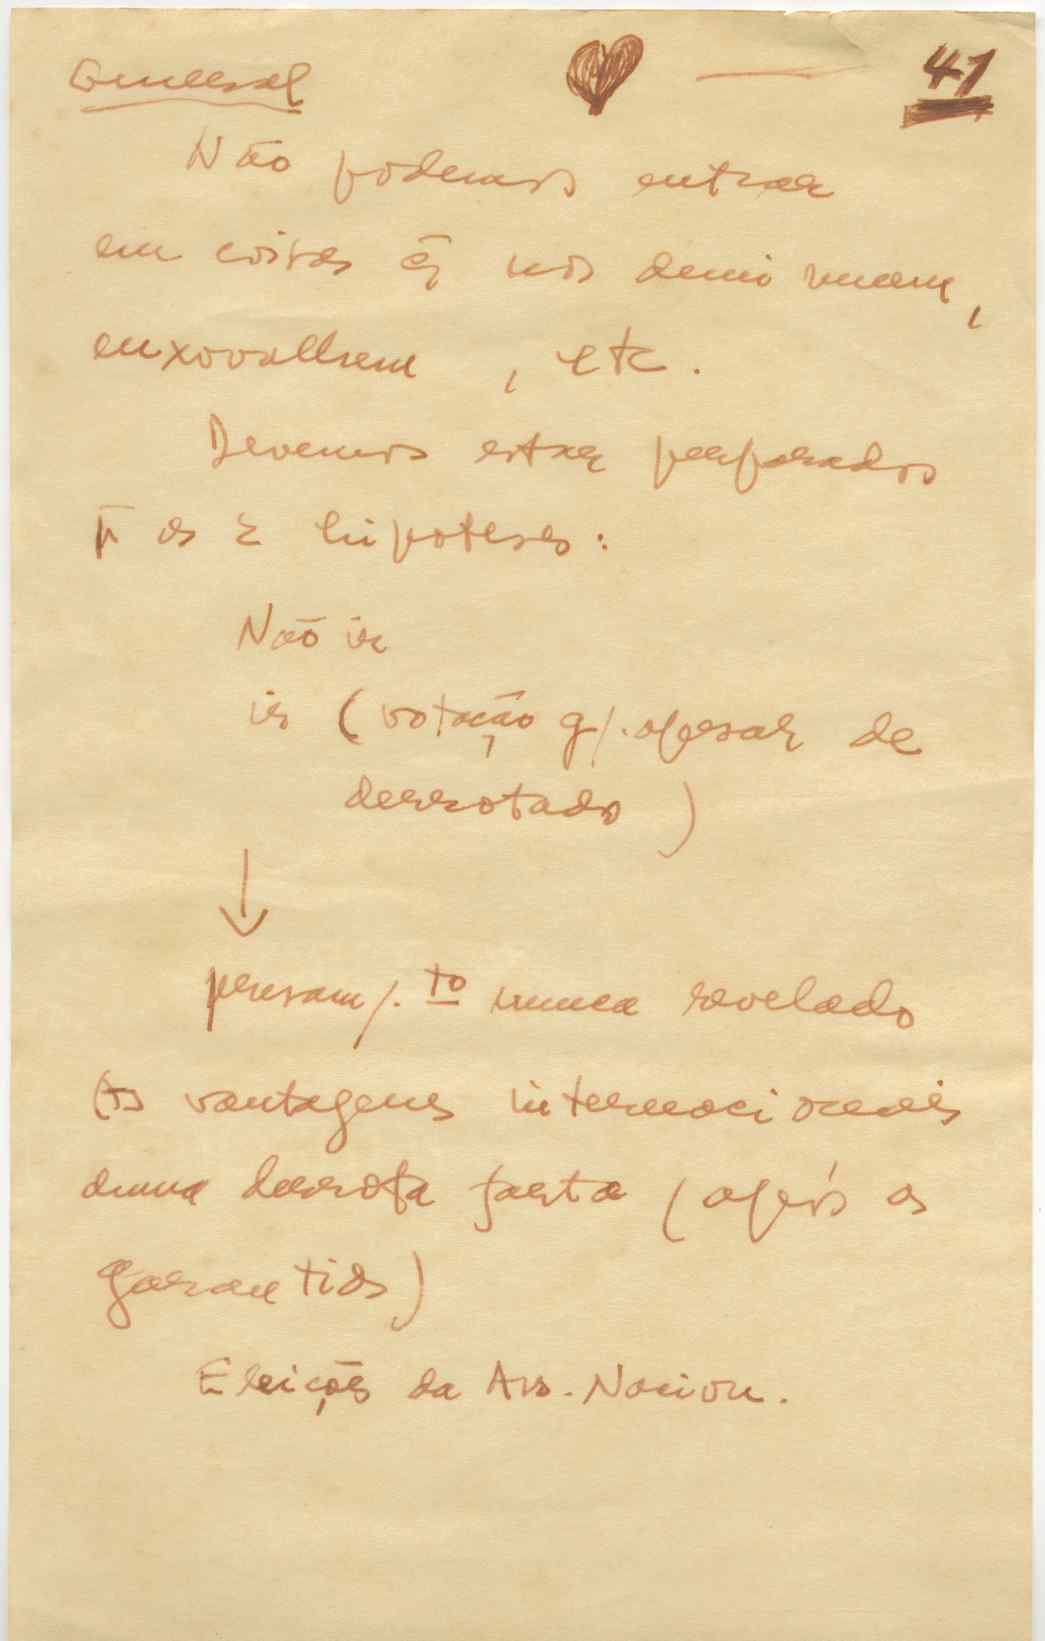 General — 41
Não podemos entrar
em coisas q̃ nos diminuam,
enxovalhem, etc.
Devemos estar preparados
p. as 2 hipoteses:
Não ir
ir (votação g/. apesar de
derrotado)
↓
pensam/.to nunca revelado
as vantagens internacionais
duma derrota farta (após as
garantias)
Eleições da Ass. Nacion.